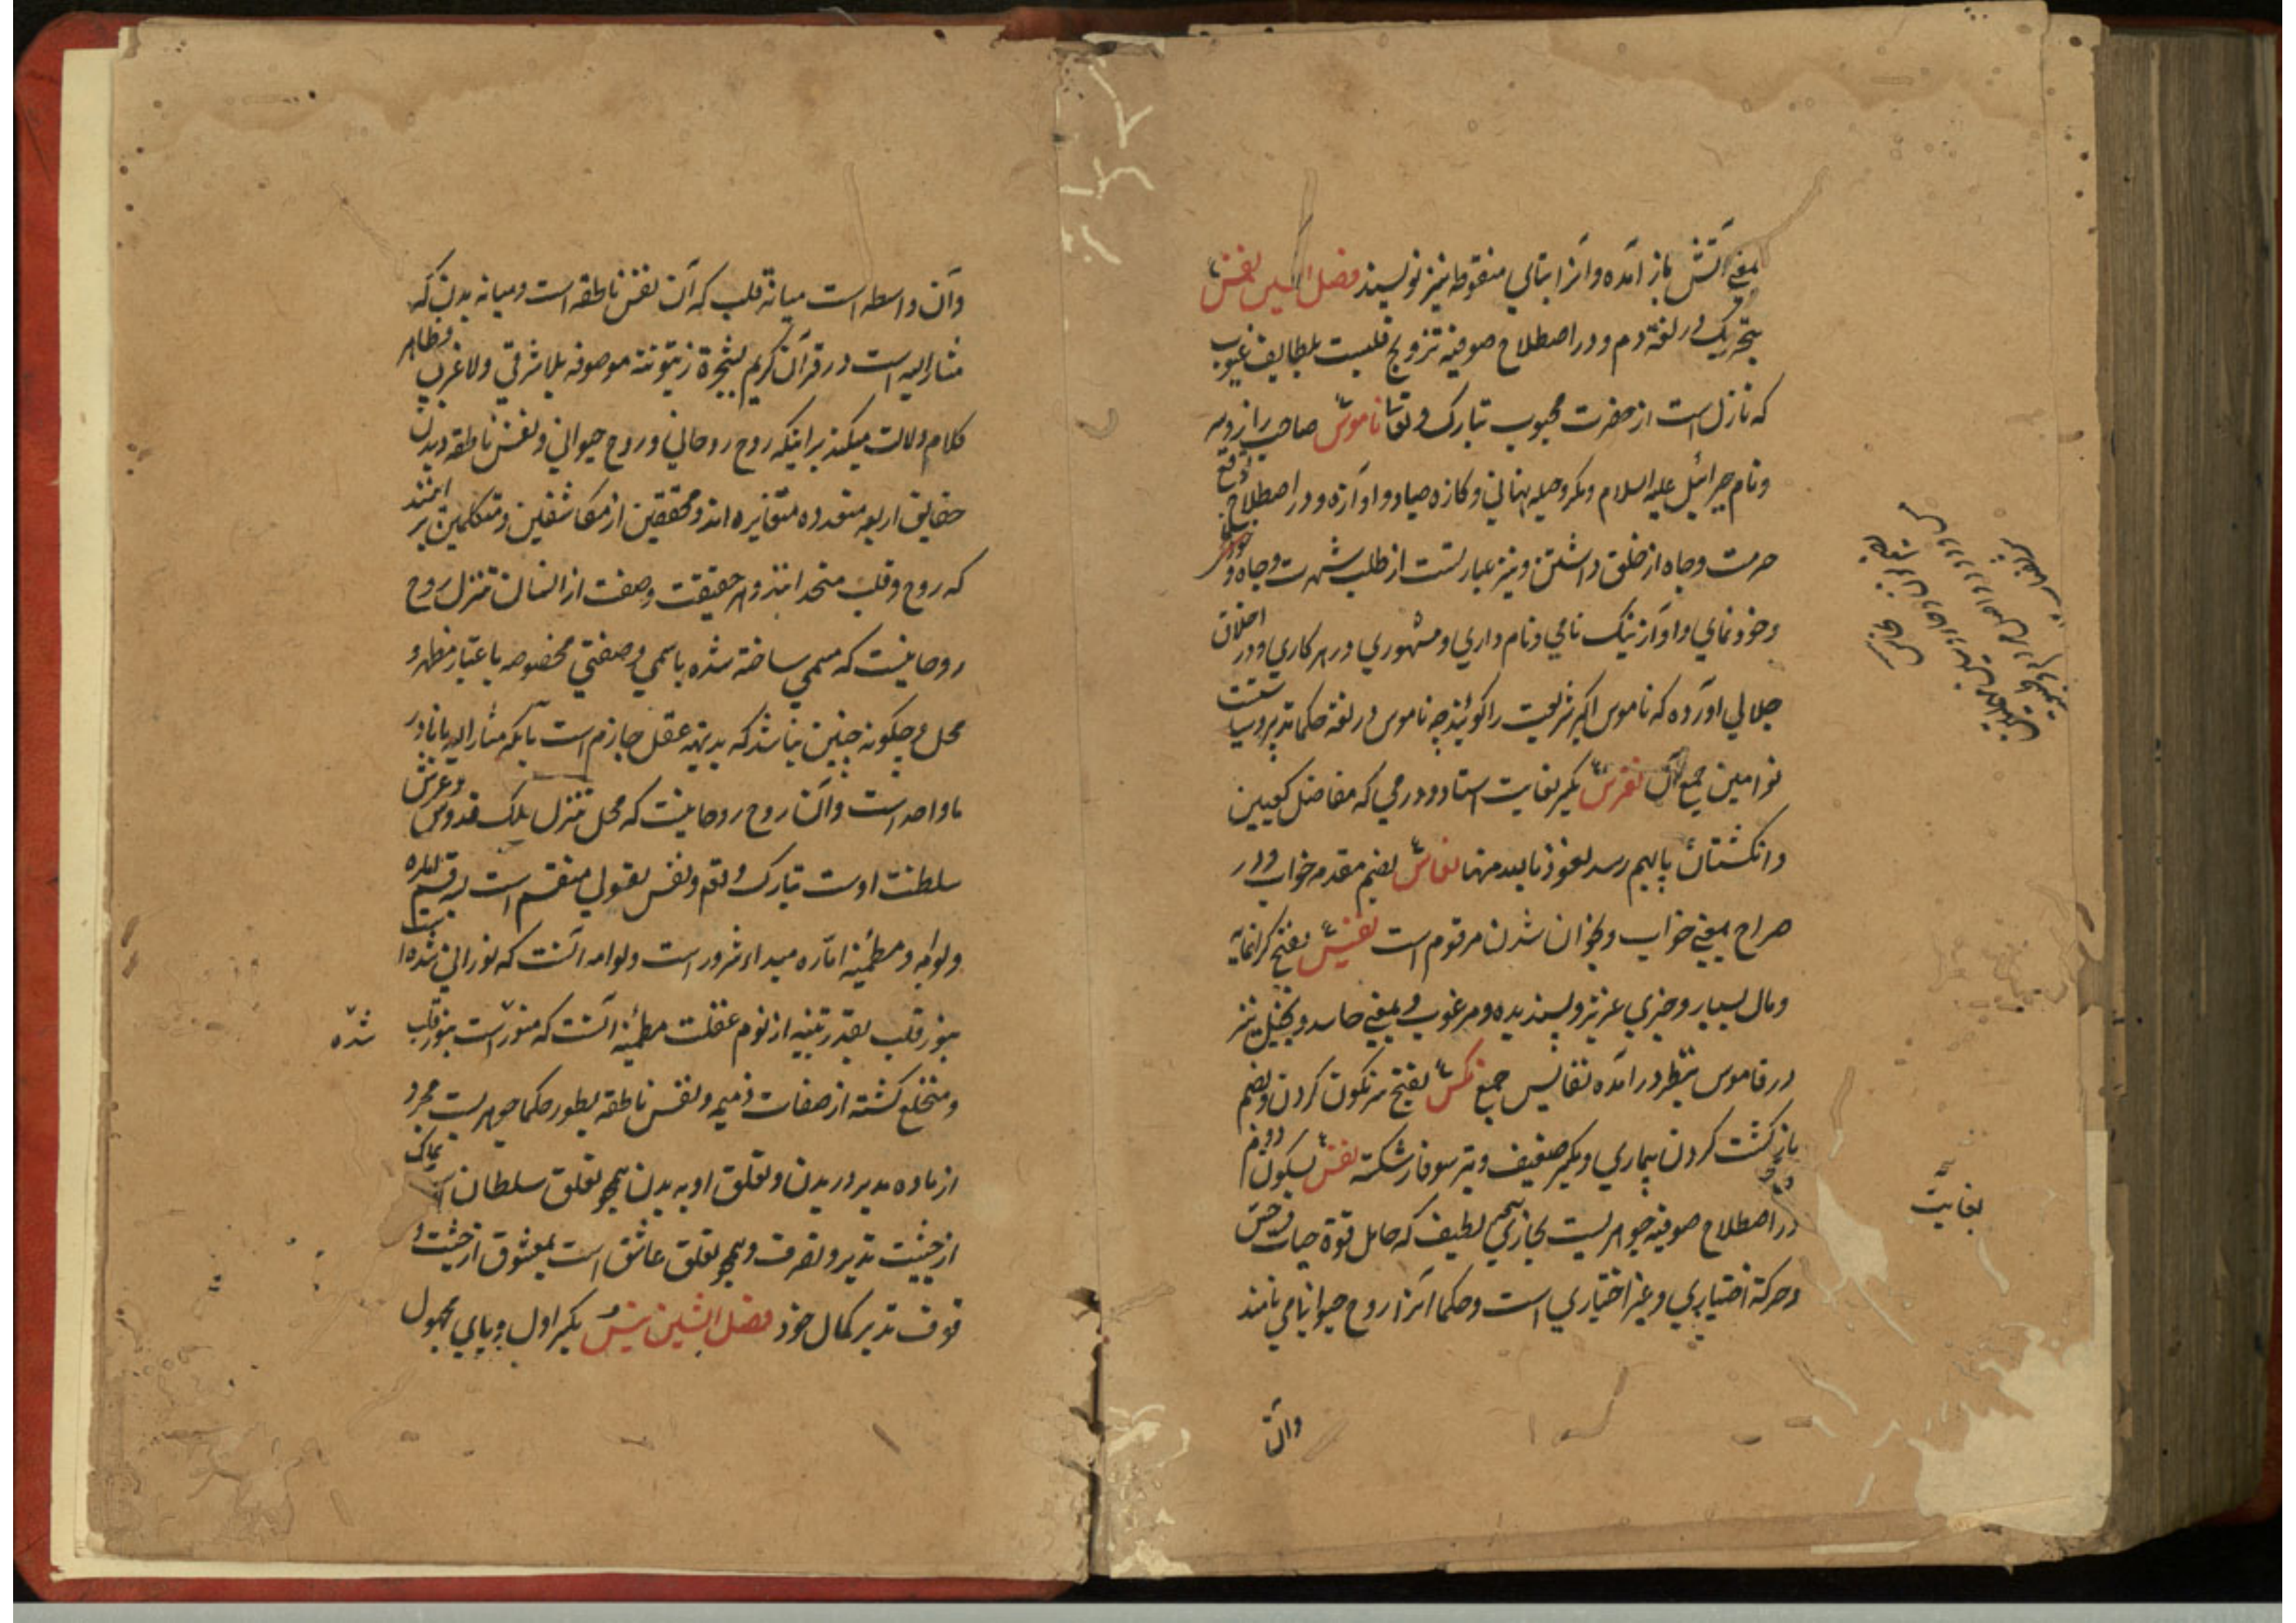 بمعنی آتش باز آمده و آنرا بتای منقوطه نیز نویسند فصل السین نفس
بتحریک در لغة دم و در اصطلاح صوفیه تزویج قلبست بلطایف غیوب
که نازل است از حضرت محبوب تبارک و تعا ناموس صاحب راز
و نام جبرائیل علیه السلام و مکر و حیله پنهانی و کازه صیاد و آوازه و در اصطلاح توقع
حرمت و جاه از خلق داشتن و نیز عبارتست از طلب شهرت و جاه و
و خودنمای و آواز نیک نامی و نام داری و مشهوری در هر کاری و در اخلاق
جلالی آورده که ناموس اکبر شریعت را گویند چه ناموس در لغة حکما تدبیر و سیاستست
نوامیس جمع آن نقرس بکسر بغایت استاد و دردی که مفاصل کعبین
و انکشتان پا بهم رسد نعوذ بالله منها نعاس بضم مقدمه خواب و در
صراح بمعنی خواب و بخواب شدن مرقوم است نفیس بفتح کرانمایه
و مال بسیار و چیزی عزیز و پسندیده و مرغوب و بمعنی حاسد و بخیل نیز
در قاموس بنظر درآمده نفایس جمع نکس بفتح سرنکون کردن و بضم
بازکشت کردن بیماری و بکسر ضعیف و تیر سوفار شکسته نفس بسکون دوم
در اصطلاح صوفیه جوهریست بخاری لطیف که حامل قوة حیات و حس
و حرکة اختیاری و غیر اختیاری است و حکما آنرا روح حیوانی نامند
بغایت
وآن
وآن واسطه است میانه قلب که آن نفس ناطقه است و میانه بدن که
مشار الیه است در قرآن کریم بشجرة زیتونة موصوفه بلا شرقی ولا غربی و ظاهر
کلام دلالت میکند بر اینکه روح روحانی و روح حیوانی و نفس ناطقه و بدن
حقایق اربعه متعدده متغایره اند و محققین از مکاشفین و متکلمین بر اینند
که روح و قلب متحد اند و هر حقیقت و صفت از انسان تنزل روح
روحانیست که مسمی ساخته شده باسمی و صفتی مخصوصه باعتبار مظهر و
محل و چکونه چنین نباشد که بدیهه عقل جازم است بآنکه مشار الیه بانا در
ما واحد است و آن روح روحانیست که محل تنزل ملک قدوس و عرش
سلطنت اوست تبارک و تعم و نفس بقولی منقسم است بسه قسم اماره
و لوامه و مطمئنه اماره مبداء شرور است و لوامه آنست که نورانی شده است
بنور قلب بقدر تنبیه از نوم غفلت مطمئنه آنست که منور است بنور قلب
شده
و منخلع کشته از صفات ذمیمه و نفس ناطقه بطور حکما جوهریست مجرد
از ماده مدبر در بدن و تعلق او به بدن همچو تعلق سلطان است بملک
از حیثیت تدبیر و تصرف و همچو تعلق عاشق است بمعشوق از حیثیت
فوت تدبیر کمال خود فصل الشین نیش بکسر اول و یای مجهول